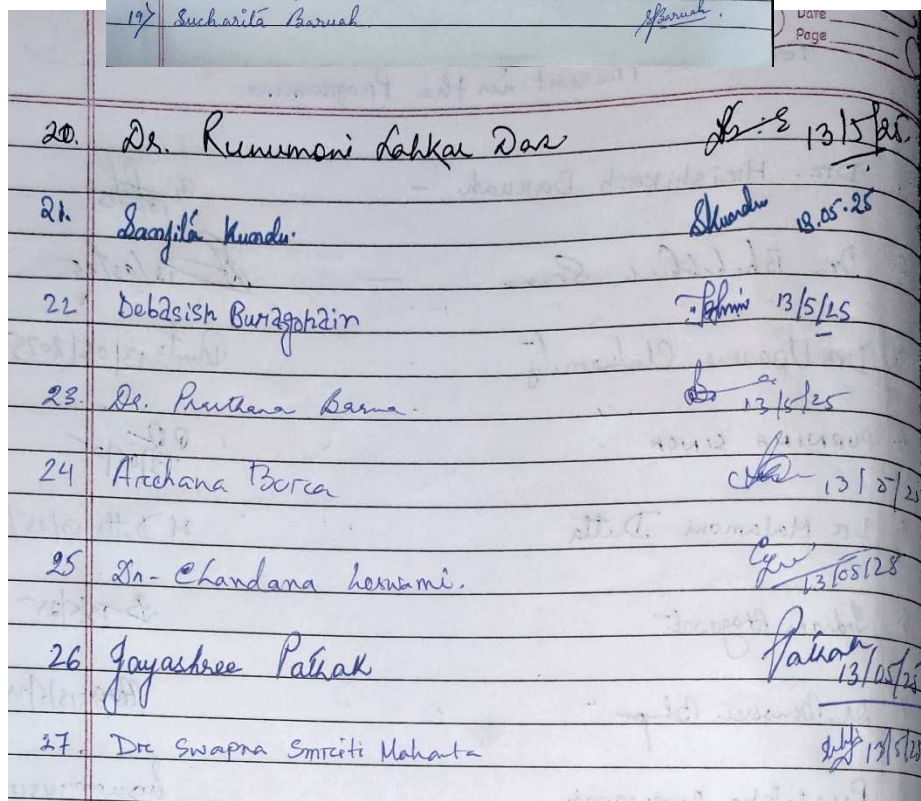 19) Sucharita Baruah SBaruah.
Date
Page
20. Dr. Runumoni Lahkar Das 13/5/25
21. Sanjita Kundu. SKundu 13.05.25
22 Debasish Buragohain 13/5/25
23. Dr. Prarthana Barua. 13/5/25
24 Archana Borca 13/5/2
25 Dr- Chandana Goswami. 13/05/25
26 Jayashree Pathak Pathak 13/05/25
27. Dr Swapna Smriti Mahanta 13/5/25